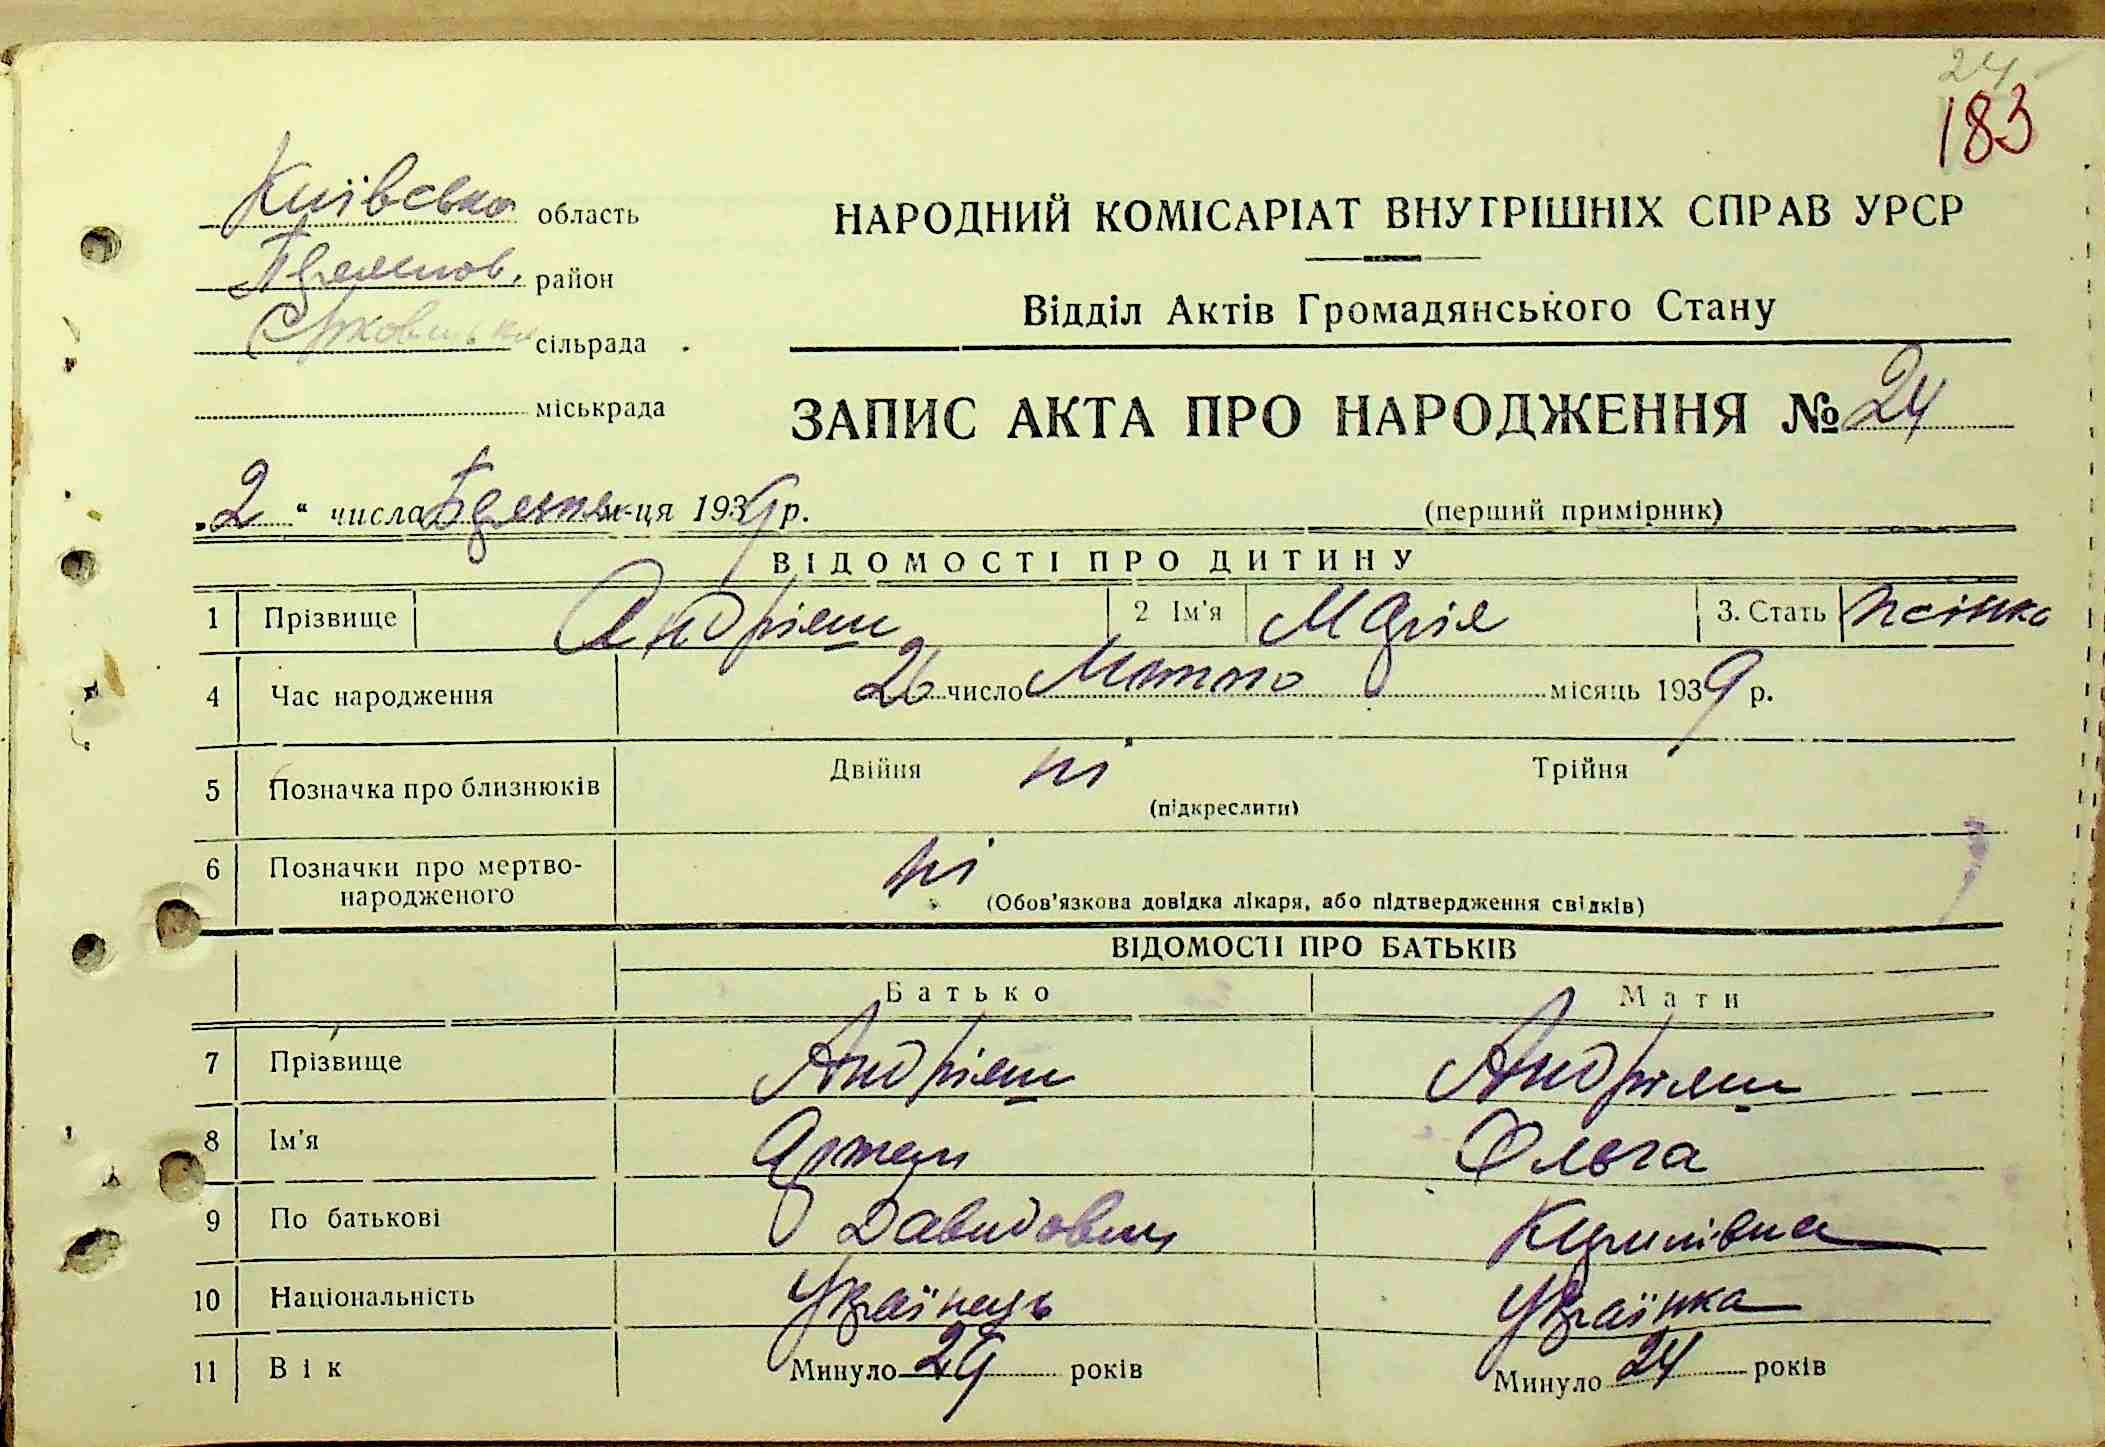 24
183
Київська область
район
сільрада
міськрада
НАРОДНИЙ КОМІСАРІАТ ВНУТРІШНІХ СПРАВ УРСР
Відділ Актів Громадянського Стану
ЗАПИС АКТА ПРО НАРОДЖЕННЯ № 24
„2“ числа м-ця 1939 р.
(перший примірник)
ВІДОМОСТІ ПРО ДИТИНУ
1 Прізвище Андріяш 2 Ім'я Марія 3. Стать жінка
4 Час народження 26 число Лютого місяць 1939 р.
5 Позначка про близнюків Двійня ні Трійня
(підкреслити)
6 Позначки про мертво-
народженого ні
(Обов'язкова довідка лікаря, або підтвердження свідків)
ВІДОМОСТІ ПРО БАТЬКІВ
Батько Мати
7 Прізвище Андріяш Андріяш
8 Ім'я Артем Ольга
9 По батькові Давидович
10 Національність Українець Українка
11 Вік Минуло 29 років Минуло 24 років